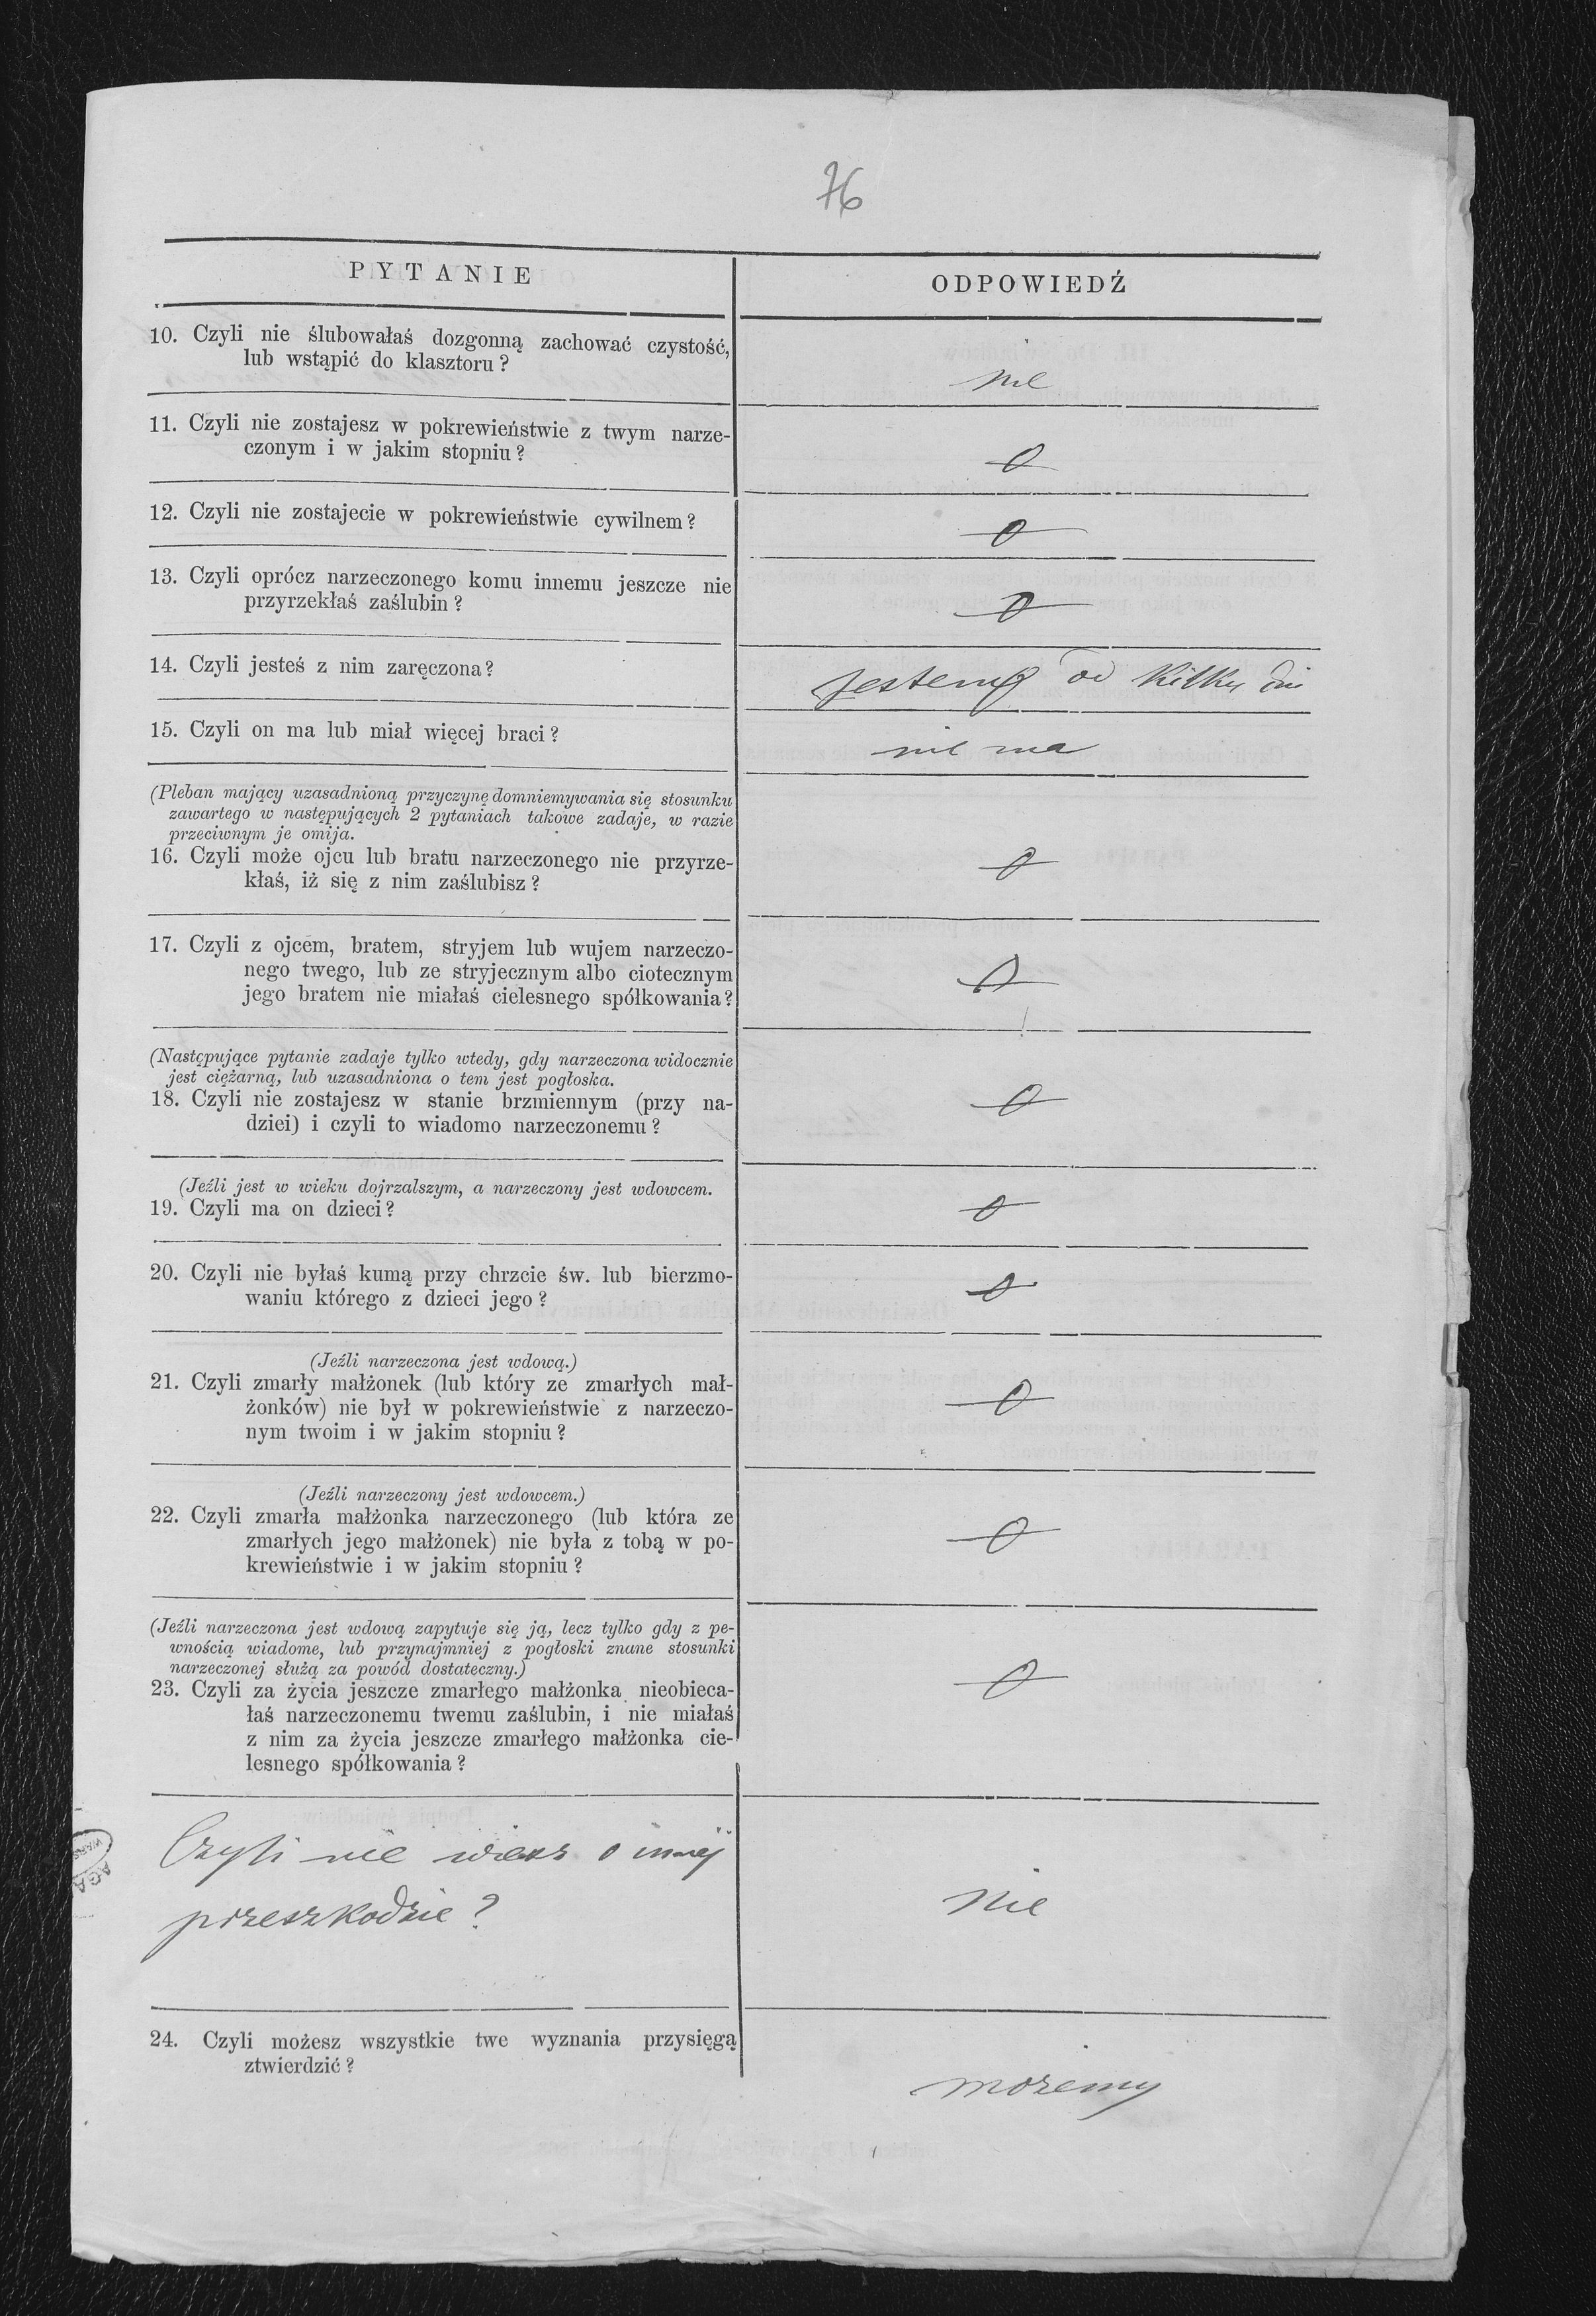 76
PYTANIE
ODPOWIEDŹ
10. Czyli nie ślubowałaś dozgonną zachować czystość,
lub wstąpić do klasztoru?
nie
11. Czyli nie zostajesz w pokrewieństwie z twym narze-
czonym i w jakim stopniu?
0
12. Czyli nie zostajecie w pokrewieństwie cywilnem?
0
13. Czyli oprócz narzeczonego komu innemu jeszcze nie
przyrzekłaś zaślubin?
0
14. Czyli jesteś z nim zaręczona?
jestem od kilku dni
15. Czyli on ma lub miał więcej braci?
nie ma
(Pleban mający uzasadnioną przyczynę domniemywania się stosunku
zawartego w następujących 2 pytaniach takowe zadaje, w razie
przeciwnym je omija.
16. Czyli może ojcu lub bratu narzeczonego nie przyrze-
kłaś, iż się z nim zaślubisz?
0
17. Czyli z ojcem, bratem, stryjem lub wujem narzeczo-
nego twego, lub ze stryjecznym albo ciotecznym
jego bratem nie miałaś cielesnego spółkowania?
0
(Następujące pytanie zadaje tylko wtedy, gdy narzeczona widocznie
jest ciężarną, lub uzasadniona o tem jest pogłoska.
18. Czyli nie zostajesz w stanie brzmiennym (przy na-
dziei) i czyli to wiadomo narzeczonemu?
0
(Jeźli jest w wieku dojrzalszym, a narzeczony jest wdowcem.
19. Czyli ma on dzieci?
0
20. Czyli nie byłaś kumą przy chrzcie św. lub bierzmo-
waniu którego z dzieci jego?
0
(Jeźli narzeczona jest wdową.)
21. Czyli zmarły małżonek (lub który ze zmarłych mał-
żonków) nie był w pokrewieństwie z narzeczo-
nym twoim i w jakim stopniu?
0
(Jeźli narzeczony jest wdowcem.)
22. Czyli zmarła małżonka narzeczonego (lub która ze
zmarłych jego małżonek) nie była z tobą w po-
krewieństwie i w jakim stopniu?
0
(Jeźli narzeczona jest wdową zapytuje się ją, lecz tylko gdy z pe-
wnością wiadome, lub przynajmniej z pogłoski znane stosunki
narzeczonej służą za powód dostateczny.)
23. Czyli za życia jeszcze zmarłego małżonka nieobieca-
łaś narzeczonemu twemu zaślubin, i nie miałaś
z nim za życia jeszcze zmarłego małżonka cie-
lesnego spółkowania?
0
Czyli nie wiesz o innej
przeszkodzie?
nie
24. Czyli możesz wszystkie twe wyznania przysięgą
ztwierdzić?
możemy
AGA